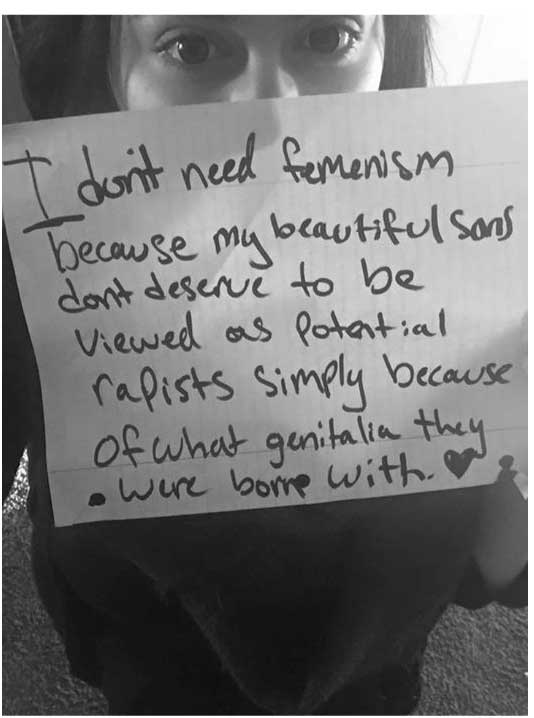 I don't need femenism
because my beautiful sons
dont deserve to be
viewed as potential
rapists simply because
of what genitalia they
were born with. ♥